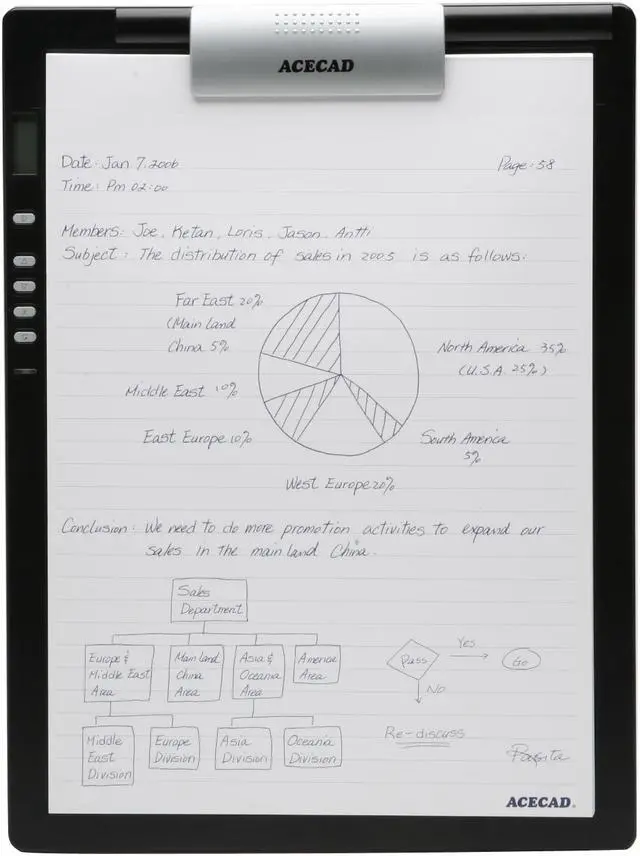 ACECAD
Date: Jan 7, 2006
Page: 58
Time: Pm 02:00
Members: Joe, Ketan, Loris, Jason, Antti
Subject: The distribution of sales in 2005 is as follows:
Far East 20%
(Main land
China 5%
North America 35%
(U.S.A. 25%)
Middle East 10%
East Europe 10%
South America
5%
West Europe 20%
Conclusion: We need to do more promotion activities to expand our
sales in the main land China.
Sales
Department
Europe &
Middle East
Area
Main land
China
Area
Asia &
Oceania
Area
America
Area
Pass
Yes
Go
No
Middle
East
Division
Europe
Division
Asia
Division
Oceania
Division
Re-discuss
ACECAD